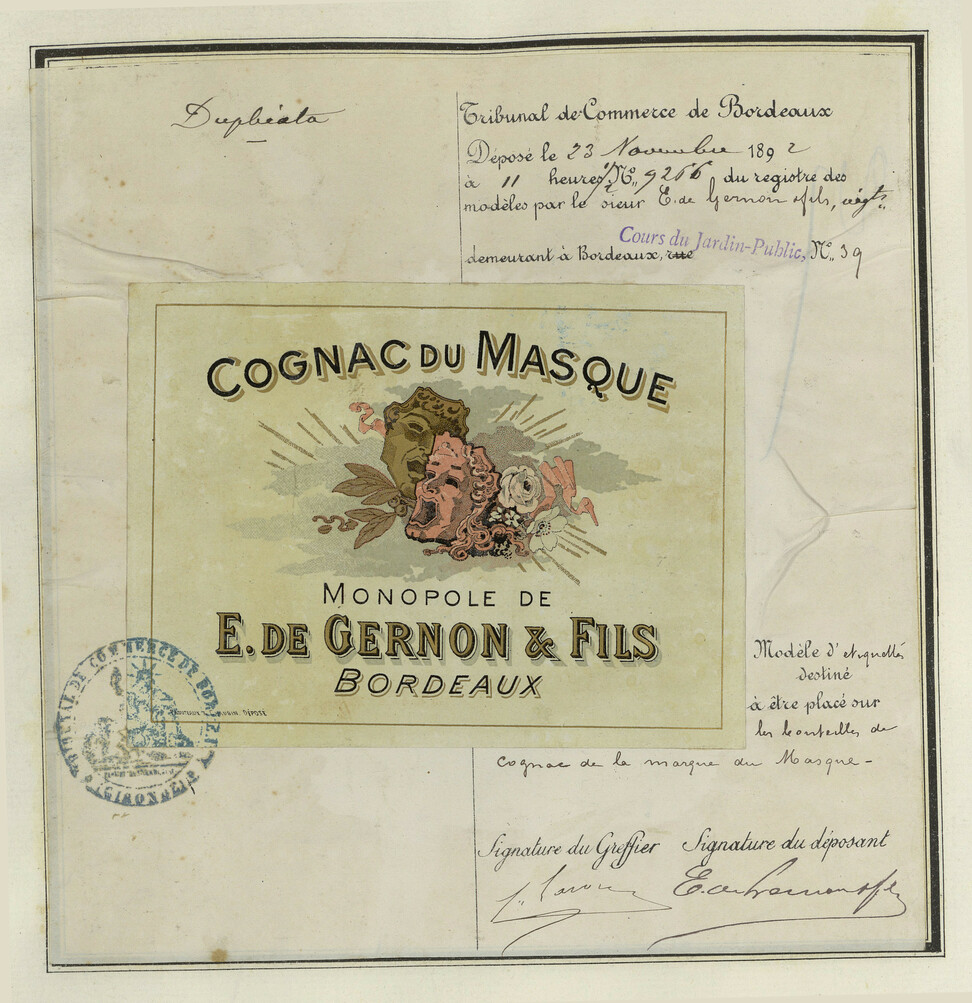 Duplicata
Tribunal de Commerce de Bordeaux
Déposé le 23 Novembre 1892
à 11 heures 1/2 N° 9266 du registre des
modèles par le sieur E. de Gernon & fils, négts
Cours du Jardin-Public,
demeurant à Bordeaux, rue N° 39
COGNAC DU MASQUE
MONOPOLE DE
E. DE GERNON & FILS
BORDEAUX
DÉPOSÉ
TRIBUNAL DE COMMERCE DE BORDEAUX
(GIRONDE)
Modèle d'étiquettes
destiné
à être placé sur
les bouteilles de
cognac de la marque du Masque -
Signature du Greffier Signature du déposant
E. de Gernon & fils